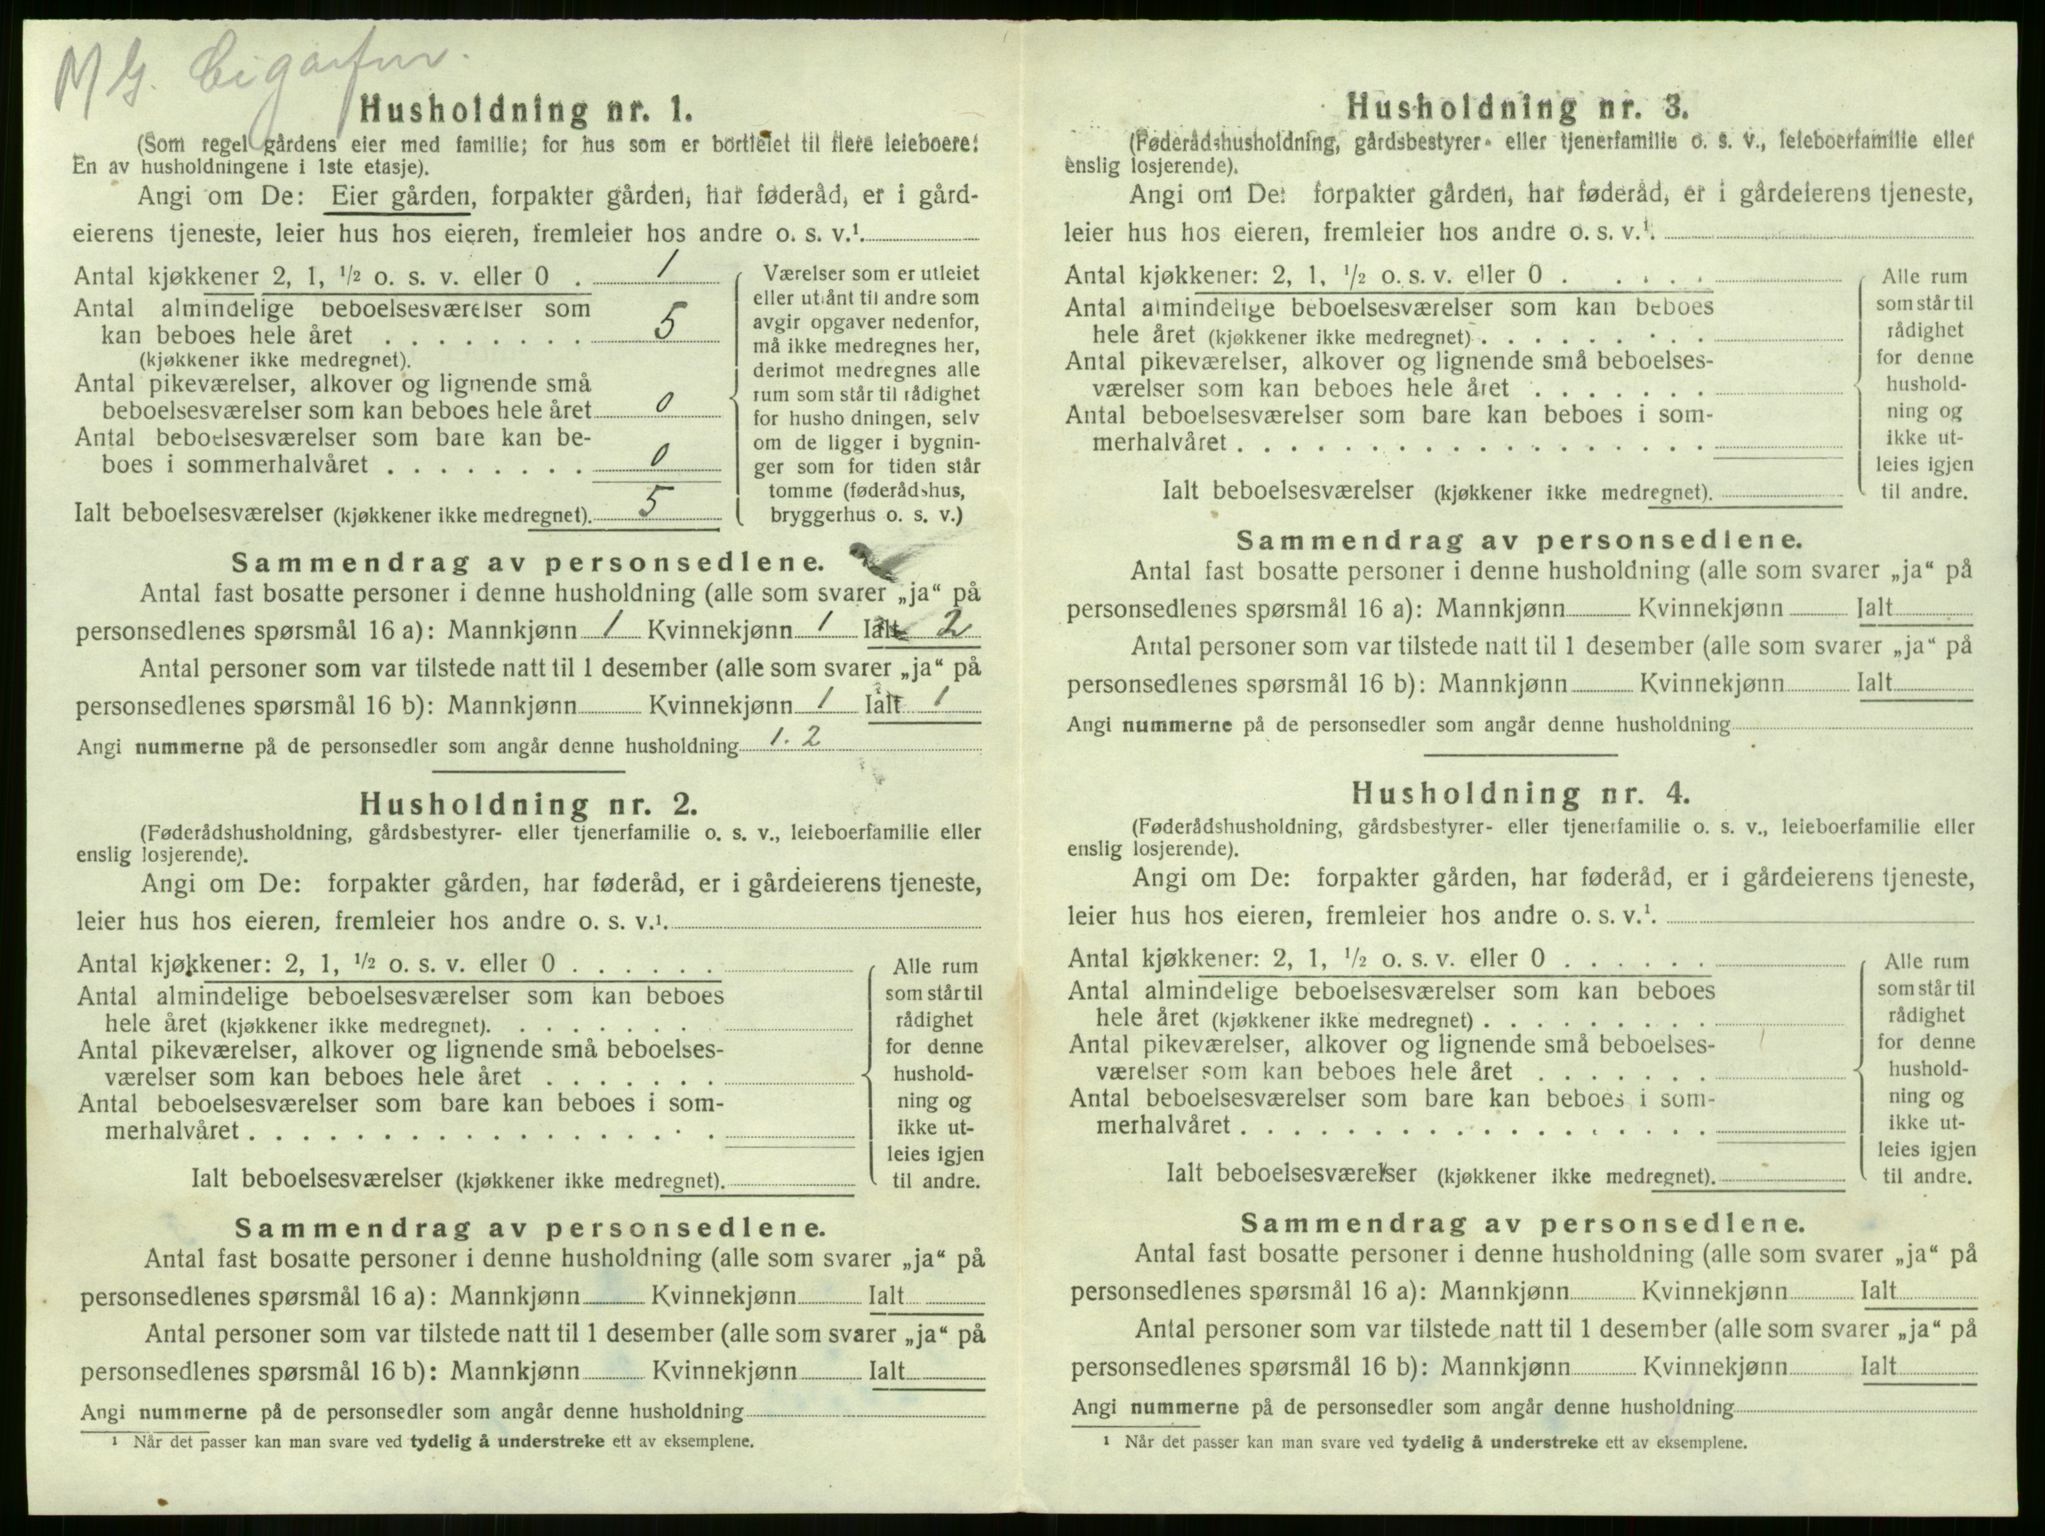 Husholdning nr. 1.
(Som regel gårdens eier med familie; for hus som er bortleiet til flere leieboere:
En av husholdningene i 1ste etasje).
Angi om De: Eier gården, forpakter gården, har føderåd, er i gård-
eierens tjeneste, leier hus hos eieren, fremleier hos andre o. s. v.¹.
Antal kjøkkener 2, 1, ½ o. s. v. eller 0 . 1
Antal almindelige beboelsesværelser som
kan beboes hele året . . . . . . . . 5
(kjøkkener ikke medregnet).
Antal pikeværelser, alkover og lignende små
beboelsesværelser som kan beboes hele året 0
Antal beboelsesværelser som bare kan be-
boes i sommerhalvåret . . . . . . . . 0
Ialt beboelsesværelser (kjøkkener ikke medregnet). 5
Værelser som er utleiet
eller utlånt til andre som
avgir opgaver nedenfor,
må ikke medregnes her,
derimot medregnes alle
rum som står til rådighet
for husho dningen, selv
om de ligger i bygnin-
ger som for tiden står
tomme (føderådshus,
bryggerhus o. s. v.)
Sammendrag av personsedlene.
Antal fast bosatte personer i denne husholdning (alle som svarer „ja“ på
personsedlenes spørsmål 16 a): Mannkjønn 1 Kvinnekjønn 1 Ialt 2
Antal personer som var tilstede natt til 1 desember (alle som svarer „ja“ på
personsedlenes spørsmål 16 b): Mannkjønn Kvinnekjønn 1 Ialt 1
Angi nummerne på de personsedler som angår denne husholdning 1. 2
Husholdning nr. 2.
(Føderådshusholdning, gårdsbestyrer- eller tjenerfamilie o. s. v., leieboerfamilie eller
enslig losjerende).
Angi om De: forpakter gården, har føderåd, er i gårdeierens tjeneste,
leier hus hos eieren, fremleier hos andre o. s. v.¹.
Antal kjøkkener: 2, 1, ½ o. s. v. eller 0 . . . . . .
Antal almindelige beboelsesværelser som kan beboes
hele året (kjøkkener ikke medregnet). . . . . . . .
Antal pikeværelser, alkover og lignende små beboelses-
værelser som kan beboes hele året . . . . . . .
Antal beboelsesværelser som bare kan beboes i som-
merhalvåret . . . . . . . . . . . . . . . . . .
Ialt beboelsesværelser (kjøkkener ikke medregnet).
Alle rum
som står til
rådighet
for denne
hushold-
ning og
ikke ut-
leies igjen
til andre.
Sammendrag av personsedlene.
Antal fast bosatte personer i denne husholdning (alle som svarer „ja“ på
personsedlenes spørsmål 16 a): Mannkjønn Kvinnekjønn Ialt
Antal personer som var tilstede natt til 1 desember (alle som svarer „ja“ på
personsedlenes spørsmål 16 b): Mannkjønn Kvinnekjønn Ialt
Angi nummerne på de personsedler som angår denne husholdning
¹ Når det passer kan man svare ved tydelig å understreke ett av eksemplene.
Husholdning nr. 3.
(Føderådshusholdning, gårdsbestyrer- eller tjenerfamilie o. s. v., leieboerfamilie eller
enslig losjerende).
Angi om De: forpakter gården, har føderåd, er i gårdeierens tjeneste,
leier hus hos eieren, fremleier hos andre o. s. v.¹.
Antal kjøkkener: 2, 1, ½ o. s. v. eller 0 . . . . .
Antal almindelige beboelsesværelser som kan beboes
hele året (kjøkkener ikke medregnet) . . . . . . . .
Antal pikeværelser, alkover og lignende små beboelses-
værelser som kan beboes hele året . . . . . . .
Antal beboelsesværelser som bare kan beboes i som-
merhalvåret . . . . . . . . . . . . . . . . . .
Ialt beboelsesværelser (kjøkkener ikke medregnet).
Alle rum
som står til
rådighet
for denne
hushold-
ning og
ikke ut-
leies igjen
til andre.
Sammendrag av personsedlene.
Antal fast bosatte personer i denne husholdning (alle som svarer „ja“ på
personsedlenes spørsmål 16 a): Mannkjønn Kvinnekjønn Ialt
Antal personer som var tilstede natt til 1 desember (alle som svarer „ja“ på
personsedlenes spørsmål 16 b): Mannkjønn Kvinnekjønn Ialt
Angi nummerne på de personsedler som angår denne husholdning
Husholdning nr. 4.
(Føderådshusholdning, gårdsbestyrer- eller tjenerfamilie o. s. v., leieboerfamilie eller
enslig losjerende).
Angi om De: forpakter gården, har føderåd, er i gårdeierens tjeneste,
leier hus hos eieren, fremleier hos andre o. s. v.¹.
Antal kjøkkener: 2, 1, ½ o. s. v. eller 0 . . . . . .
Antal almindelige beboelsesværelser som kan beboes
hele året (kjøkkener ikke medregnet) . . . . . . . .
Antal pikeværelser, alkover og lignende små beboelses-
værelser som kan beboes hele året . . . . . . .
Antal beboelsesværelser som bare kan beboes i som-
merhalvåret . . . . . . . . . . . . . . . . . .
Ialt beboelsesværelser (kjøkkener ikke medregnet).
Alle rum
som står til
rådighet
for denne
hushold-
ning og
ikke ut-
leies igjen
til andre.
Sammendrag av personsedlene.
Antal fast bosatte personer i denne husholdning (alle som svarer „ja“ på
personsedlenes spørsmål 16 a): Mannkjønn Kvinnekjønn Ialt
Antal personer som var tilstede natt til 1 desember (alle som svarer „ja“ på
personsedlenes spørsmål 16 b): Mannkjønn Kvinnekjønn Ialt
Angi nummerne på de personsedler som angår denne husholdning
¹ Når det passer kan man svare ved tydelig å understreke ett av eksemplene.